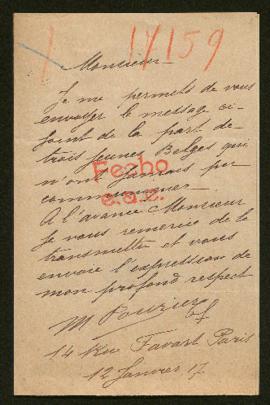 17159
Monsieur
Je me permets de vous
envoyer le message ci-
joint de la part de
trois jeunes Belges qui
n'ont jamais pu
communiquer
Fecho
e.a.z.
A l'avance Monsieur
Je vous remercie de la
transmettre et vous
envoie l'expression de
mon profond respect
M
14 Rue Favart Paris
12 Janvier 17